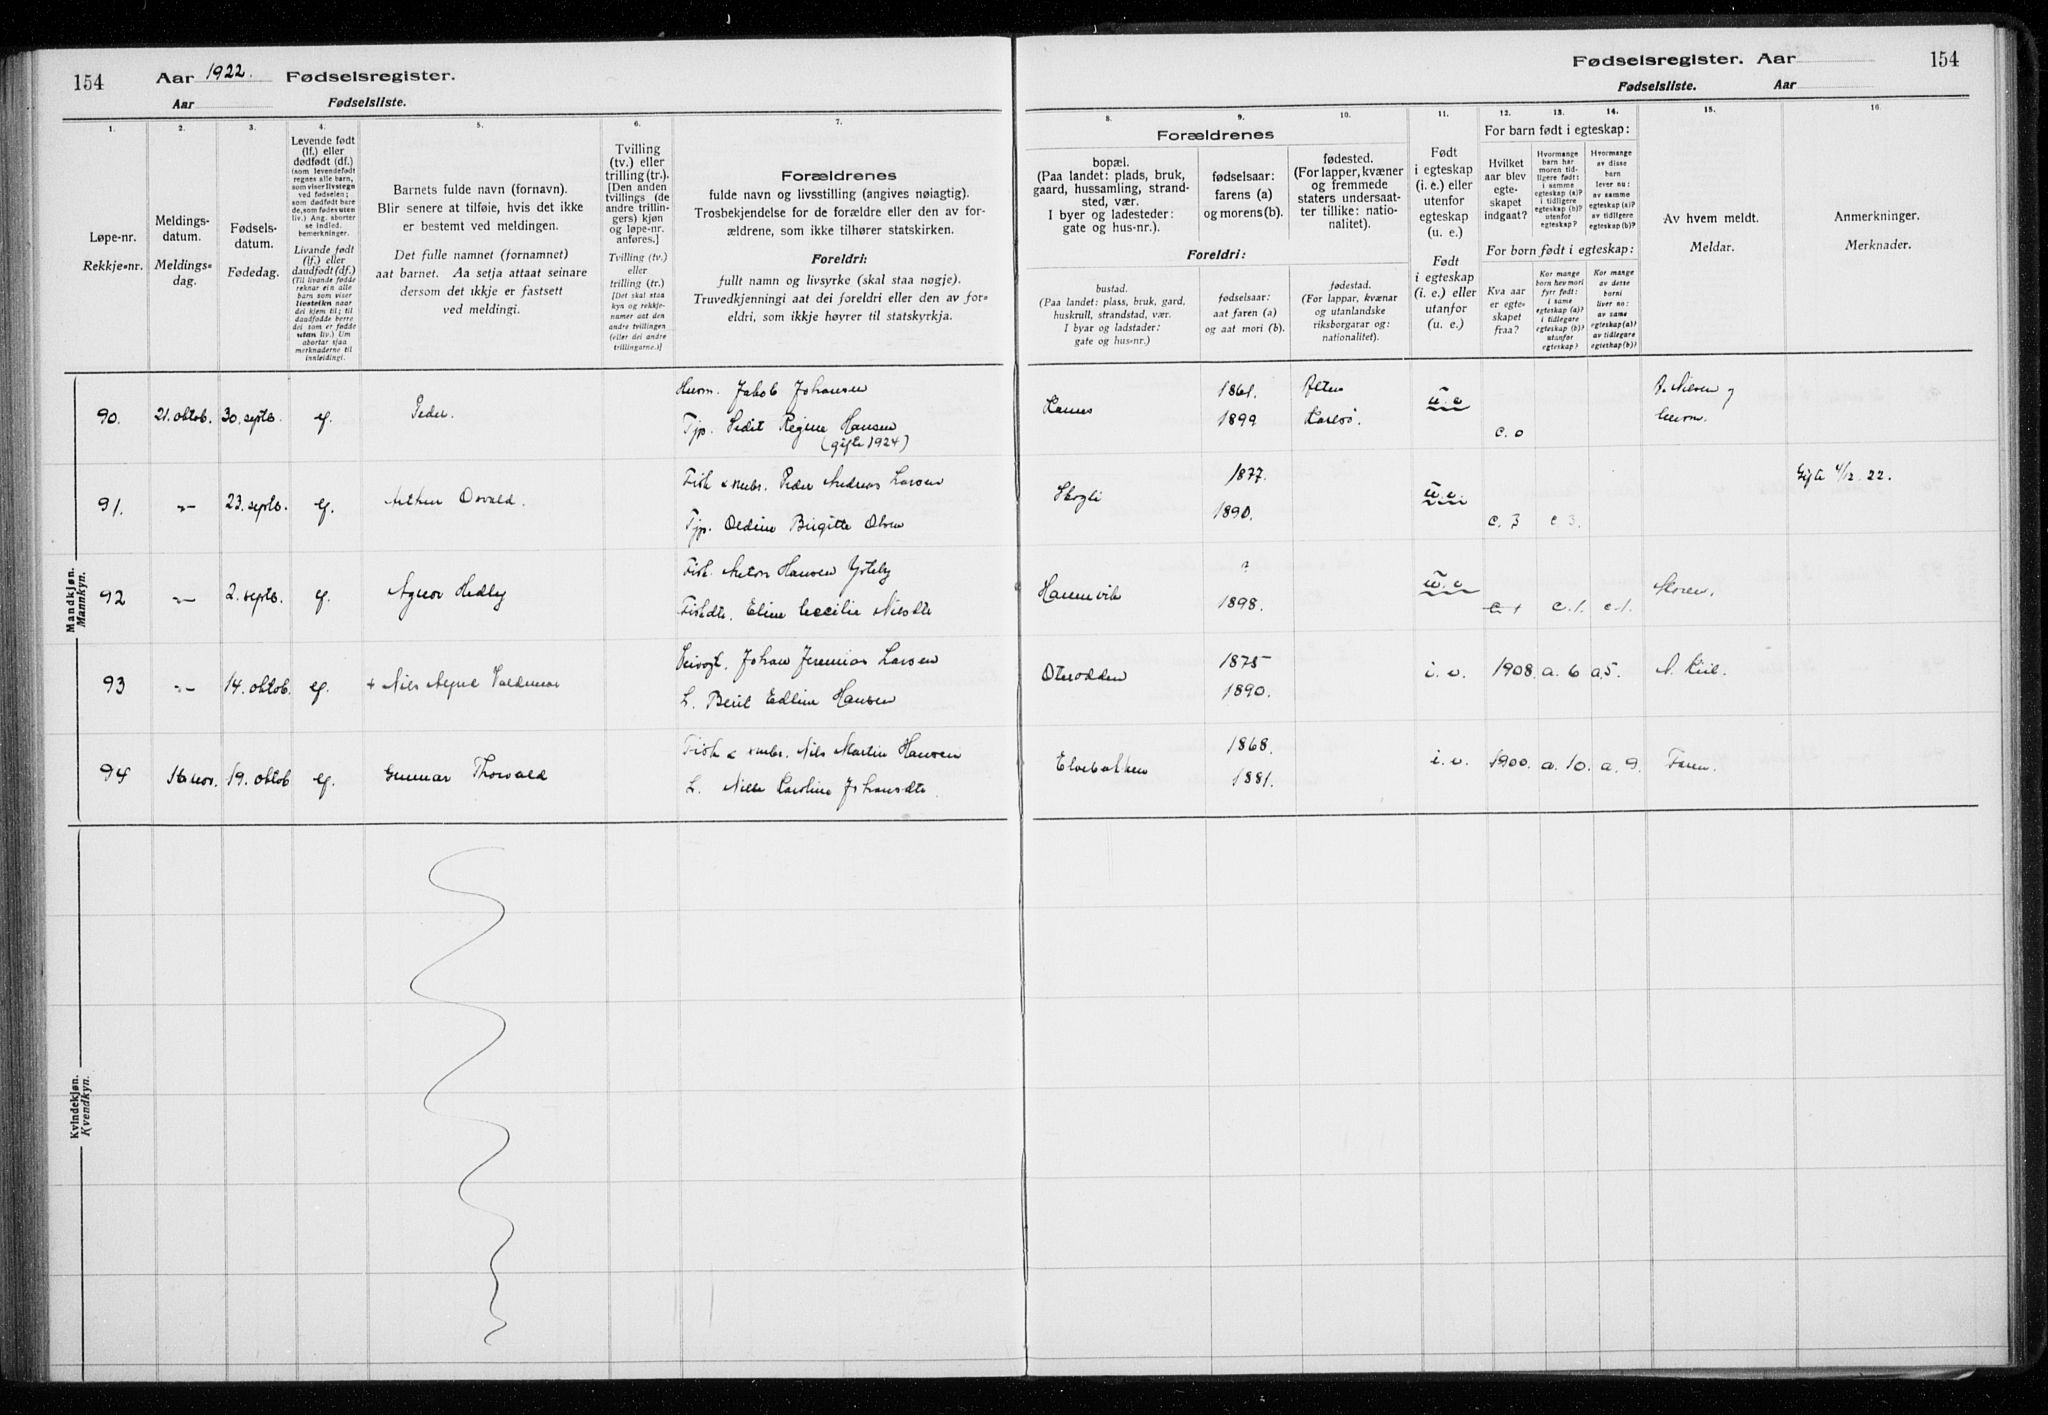 154
Aar 1922. Fødselsregister.
Aar Fødselsliste.
Fødselsregister. Aar 154
Fødselsliste. Aar
1. 2. 3. 4. 5. 6. 7.
Løpe-nr.
Rekkje-nr.
Meldings-
datum.
Meldings-
dag.
Fødsels-
datum.
Fødedag.
Levende født
(lf.) eller
dødfødt (df.)
(som levendefødt
regnes alle barn,
som viser livstegn
ved fødselen;
som dødfødt bare
de, som fødes uten
liv.) Ang. aborter
se indled.
bemerkninger.
Livande født
(lf.) eller
daudfødt (df.)
(Til livande fødde
reknar ein alle
barn som viser
livsteikn naar
dei kjem til; til
daudfødde berre
dei som er fødde
utan liv.) Um
abortar sjaa
merknaderne til
innleidingi.
Barnets fulde navn (fornavn).
Blir senere at tilføie, hvis det ikke
er bestemt ved meldingen.
Det fulle namnet (fornamnet)
aat barnet. Aa setja attaat seinare
dersom det ikkje er fastsett
ved meldingi.
Tvilling
(tv.) eller
trilling (tr.).
[Den anden
tvillings (de
andre trillin-
gers) kjøn
og løpe-nr.
anføres.]
Tvilling (tv.)
eller
trilling (tr.)
[Det skal staa
kyn og rekkje-
numer aat den
andre tvillingen
(eller dei andre
trillingarne.)]
Forældrenes
fulde navn og livsstilling (angives nøiagtig).
Trosbekjendelse for de forældre eller den av for-
ældrene, som ikke tilhører statskirken.
Foreldri:
fullt namn og livsyrke (skal staa nøgje).
Truvedkjenningi aat dei foreldri eller den av for-
eldri, som ikkje høyrer til statskyrkja.
8. 9. 10. 11. 12. 13. 14. 15. 16.
Forældrenes
bopæl.
(Paa landet: plads, bruk,
gaard, hussamling, strand-
sted, vær.
I byer og ladesteder:
gate og hus-nr.).
fødselsaar:
farens (a)
og morens (b).
fødested.
(For lapper, kvæner
og fremmede
staters undersaat-
ter tillike: natio-
nalitet).
Foreldri:
bustad.
(Paa landet: plass, bruk, gard,
huskrull, strandstad, vær.
I byar og ladstader:
gate og hus-nr.)
fødselsaar:
aat faren (a)
og aat mori (b).
fødestad.
(For lappar, kvænar
og utanlandske
riksborgarar og:
nationalitet).
Født
i egteskap
(i. e.) eller
utenfor
egteskap
(u. e.)
Født
i egteskap
(i. e.) eller
utanfor
(u. e.)
For barn født i egteskap:
Hvilket
aar blev
egte-
skapet
indgaat?
Hvormange
barn har
moren tid-
ligere født:
i samme
egteskap (a)?
i tidligere
egteskap (b)?
utenfor
egteskap?
Hvormange
av disse
barn
lever nu:
av samme
egteskap (a)?
av tidligere
egteskap (b)?
For born født i egteskap:
Kva aar
er egte-
skapet
fraa?
Kor mange
born hev mori
fyrr født:
i same
egteskap (a)?
i tidlegare
egteskap (b)?
utanfor
egteskap?
Kor mange
av desse
borni
liver no:
av same
egteskap (a)?
av tidlegare
egteskap (b)?
Av hvem meldt.
Meldar.
Anmerkninger.
Merknader.
Mandkjøn.
Mannkyn.
90. 21. oktob. 30. septb. lf. Peder. Husm. Jakob Johansen
Tjp. Sedit Regine Hansen
(gifte 1924)
1861. Alten
1899
u. e c. 0 Nilsen og
91. -"- 23. septb. lf. Arthur Osvald. Fisk & rydn. Peder Andreas Larsen
Tjp. Oldine Birgitte Olsen
Skogli 1877.
1890. u. e. c. 3 c 3. Gifte 4/12. 22.
92 -"- 2. septb. lf. Agnor Hedley Fisk. Anton Hansen
Fiskdtr. Eline Cecilie Nilsdtr
?
1898. u. e c 1 c. 1. c. 1.
93 -"- 14. oktob. lf. + Nils Alfred Valdemar Johan Jeremias Larsen
L. Berit Edline Hansen
Oterodden 1875
1890. i. e. 1908. a. 6 a 5.
94 16 nov. 19. oktob lf. Gunnar Thorvald Nils Martin Hansen
L. Nille Karoline Johansdtr.
Elvebakken 1868.
1881. i. e. 1900. a. 10. a. 9. Faren.
Kvindekjøn.
Kvendkyn.